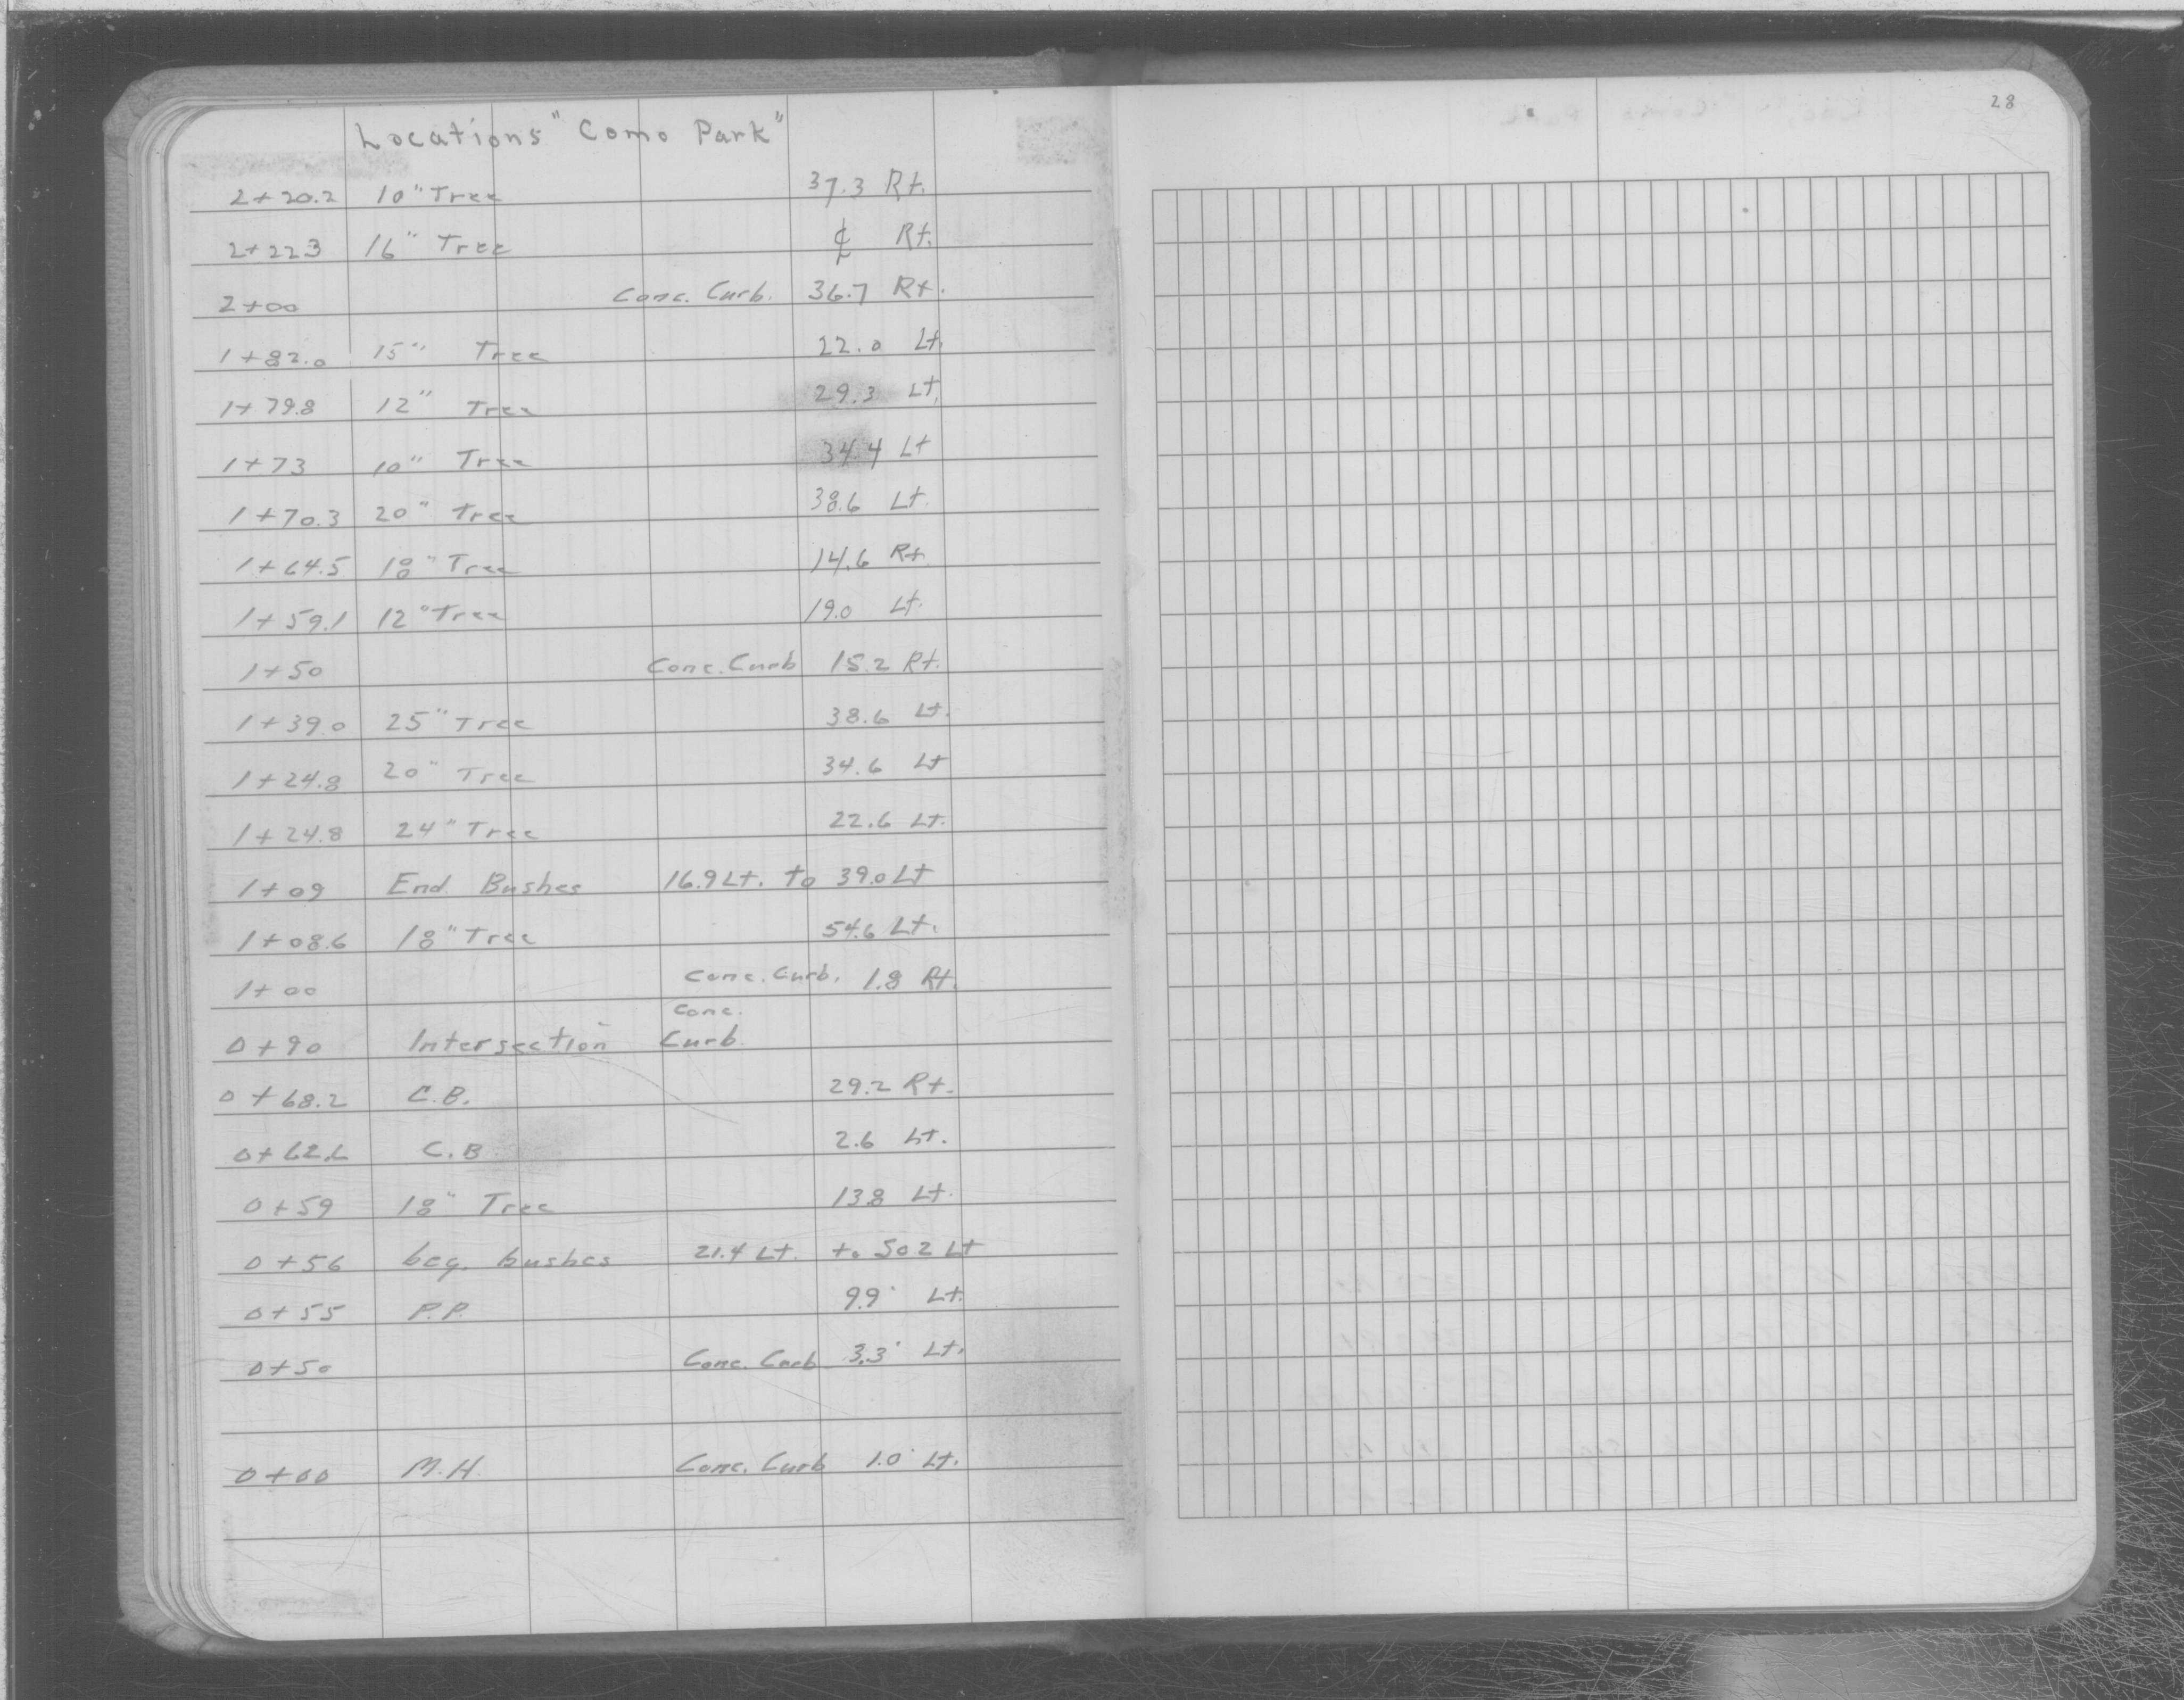 Locations "Como Park"
28
2+20.2 10" Tree 37.3 Rt.
2+22.3 16" Tree ℄ Rt.
2+00 Conc. Curb. 36.7 Rt.
1+82.0 15" Tree 22.0 Lt.
1+79.8 12" Tree 29.3 Lt.
1+73 10" Tree 34.4 Lt
1+70.3 20" Tree 38.6 Lt.
1+64.5 18" Tree 14.6 Rt.
1+59.1 12" Tree 19.0 Lt.
1+50 Conc. Curb 15.2 Rt.
1+39.0 25" Tree 38.6 Lt.
1+24.8 20" Tree 34.6 Lt
1+24.8 24" Tree 22.6 Lt.
1+09 End. Bushes 16.9 Lt. to 39.0 Lt
1+08.6 18" Tree 54.6 Lt.
1+00 Conc. Curb. 1.8 Rt.
Conc.
0+90 Intersection Curb.
0+68.2 C.B. 29.2 Rt.
0+62.6 C.B 2.6 Lt.
0+59 18" Tree 13.8 Lt.
0+56 beg. bushes 21.4 Lt. to 50.2 Lt
0+55 P.P. 9.9' Lt.
0+50 Conc. Curb 3.3' Lt.
0+00 M.H. Conc. Curb 1.0' Lt.